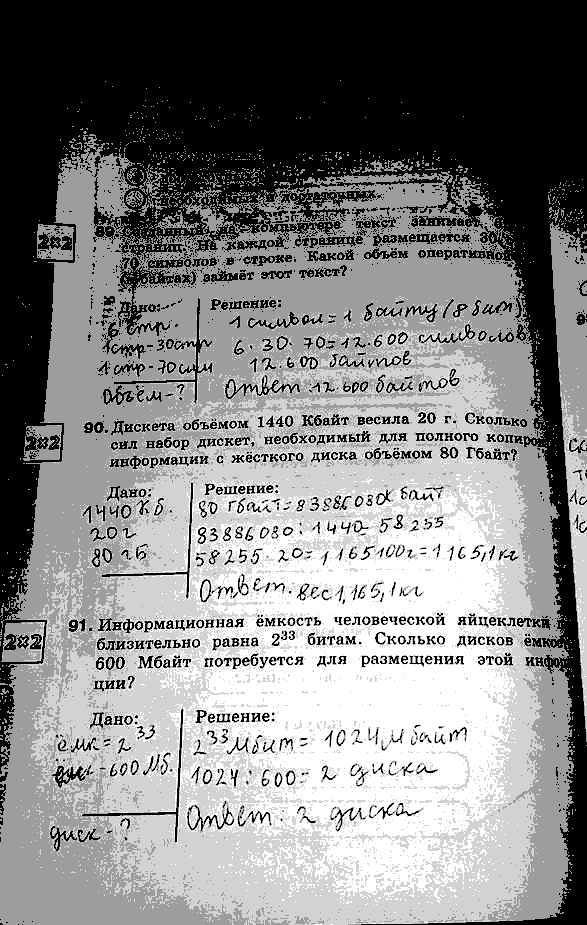 необходимых и достаточных
89. Созданный на компьютере текст занимает
страниц. На каждой странице размещается 30
70 символов в строке. Какой объём оперативной
(в байтах) займёт этот текст?
2×2
Дано:
Решение:
6 стр.
1 символ = 1 байту (8 бит)
1стр-30стр
6·30·70=12.600 символов
1стр-70сим
12.600 байтов
Объём-?
Ответ 12 600 байтов
90. Дискета объёмом 1440 Кбайт весила 20 г. Сколько
2×2
сил набор дискет, необходимый для полного копиро
информации с жёсткого диска объёмом 80 Гбайт?
Дано:
Решение:
1440 Кб.
80 гбайт=83886080к байт
20 г
83886080:1440=58 255
80 гб
58255·20=1165100г=1165,1кг
Ответ. вес 1,165,1кг
91. Информационная ёмкость человеческой яйцеклетки
2×2
близительно равна 2³³ битам. Сколько дисков ёмкос
600 Мбайт потребуется для размещения этой инфор
ции?
Дано:
Решение:
ёмк=2³³
2³³Мбит= 1024Мбайт
-600 Мб.
1024:600=2 диска
диск-?
Ответ. 2 диска